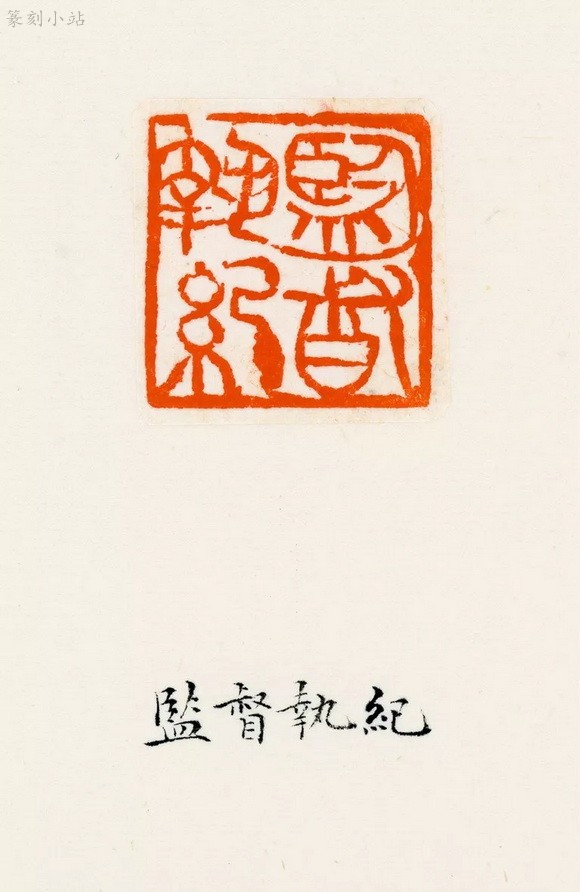 篆刻小站
監督
執紀
監督執紀